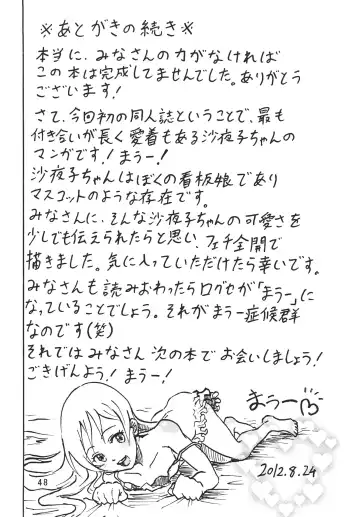 ※あとがきの続き※
本当に、みなさんの力がなければ
この本は完成してませんでした。ありがとう
ございます!
さて、今回初の同人誌ということで、最も
付き合いが長く愛着もある沙夜子ちゃんの
マンガです!まうー!
沙夜子ちゃんはぼくの看板娘であり
マスコットのような存在です。
みなさんに、そんな沙夜子ちゃんの可愛さを
少しでも伝えられたらと思い、フェチ全開で
描きました。気に入っていただけたら幸いです。
みなさんも読みおわったら口グセが「まうー」に
なっていることでしょう。それがまうー症候群
なのです(笑)
それではみなさん 次の本でお会いしましょう!
ごきげんよう!まうー!
まうー
2012.8.24
48